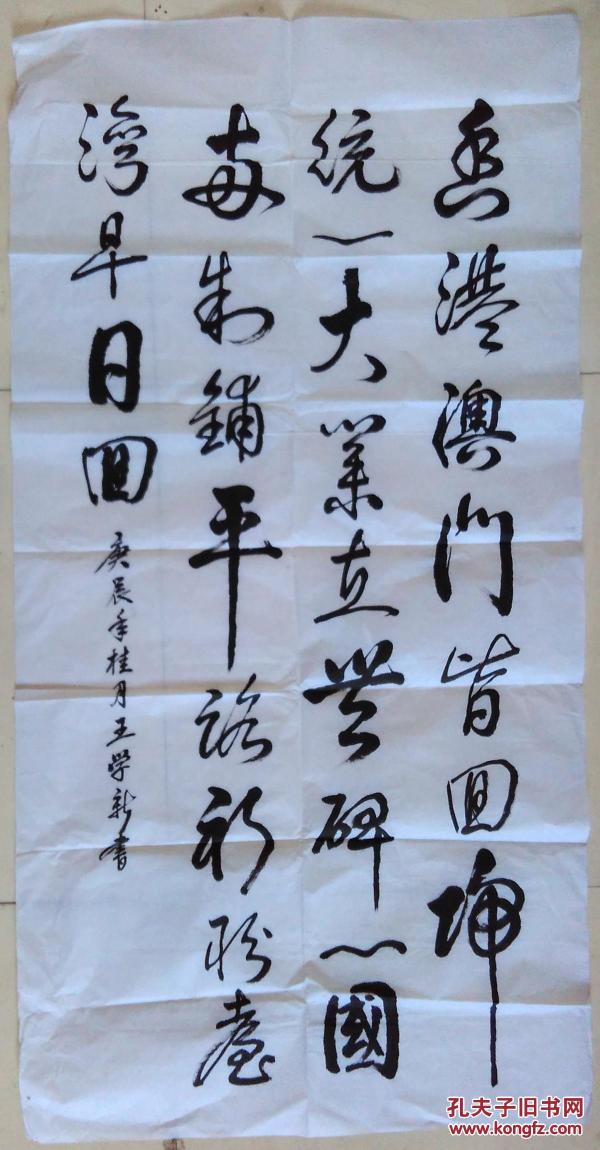 香港澳門皆回歸
統一大業立豐碑一國
两制鋪平路祈盼臺
灣早日回
庚辰年桂月王学新書
孔夫子旧书网
www.kongfz.com